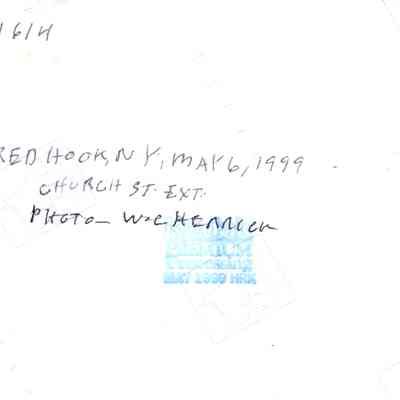 1614
RED HOOK, N Y, MAY 6, 1999
CHURCH ST. EXT.
PHOTO – W.C HERRICK
MAY 1999 HRK